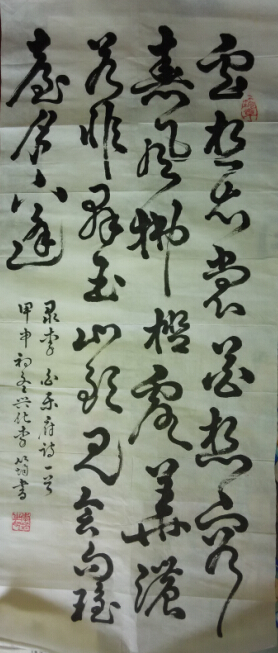 雲想衣裳花想容
春風拂檻露華濃
若非群玉山頭見會向瑶
臺月下逢
录李白乐府诗一首
甲申初冬兴化李書